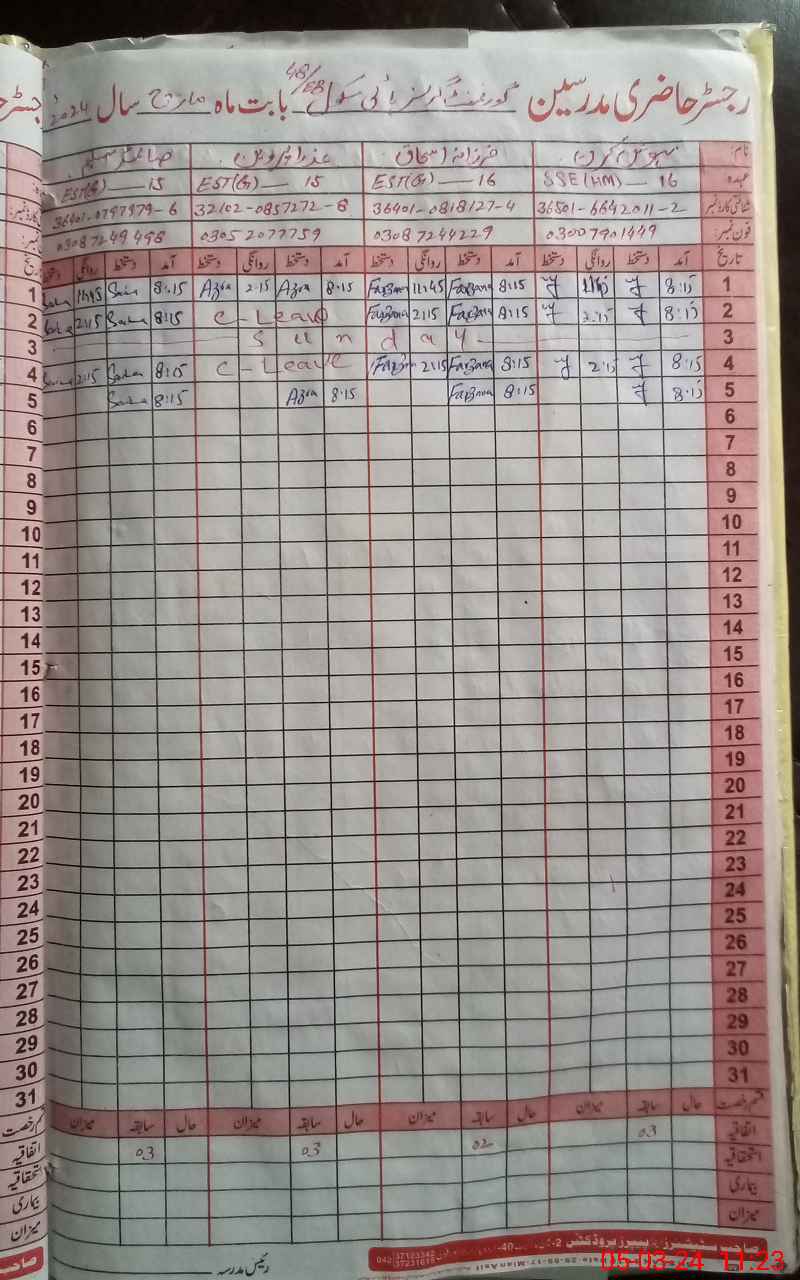 رجسٹر حاضری مدرسین گورنمنٹ گرلز ہائی سکول 48/68 بابت ماہ مارچ سال 2024
نام: فرزانہ اسحاق عذرا پروین صائمہ
عہدہ SSE(HM) — 16 EST(G) — 16 EST(G) — 15 EST(G) — 15
شناختی کارڈ نمبر 36501-6642011-2 36401-0818127-4 32102-0857272-8 36401-0797979-6
فون نمبر: 03007901449 03087244229 03052077759 03087249498
تاریخ آمد دستخط روانگی دستخط آمد دستخط روانگی دستخط آمد دستخط روانگی دستخط آمد دستخط روانگی دستخط تاریخ
1 8:15 8:15 Farzana 11:45 Farzana 8:15 Azra 2:15 Azra 8:15 Saima 11:45 Saima 1
2 8:15 2:15 8:15 Farzana 2:15 Farzana C-Leave 8:15 Saima 2:15 Saima 2
3 Sunday 3
4 8:15 2:15 8:15 Farzana 2:15 Farzana C-Leave 8:15 Saima 2:15 Saima 4
5 8:15 8:15 Farzana 8:15 Azra 8:15 Saima 5
6 6
7 7
8 8
9 9
10 10
11 11
12 12
13 13
14 14
15 15
16 16
17 17
18 18
19 19
20 20
21 21
22 22
23 23
24 24
25 25
26 26
27 27
28 28
29 29
30 30
31 31
قسم رخصت حال سابقہ میزان حال سابقہ میزان حال سابقہ میزان حال سابقہ میزان قسم رخصت
اتفاقیہ 03 02 03 03 اتفاقیہ
استحقاقیہ استحقاقیہ
بیماری بیماری
میزان میزان
رئیس مدرسہ
042 37123342
37231619
05-03-24 11:23